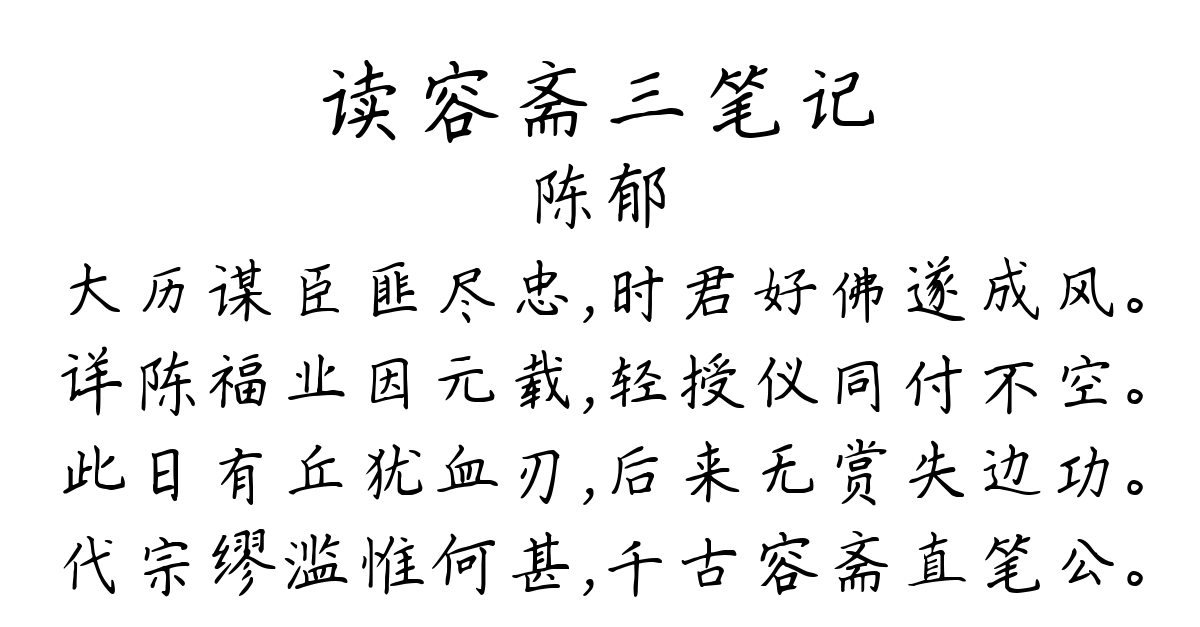 读容斋三笔记
陈郁
大历谋臣匪尽忠,时君好佛遂成风。
详陈福业因元载,轻授仪同付不空。
此日有丘犹血刃,后来无赏失边功。
代宗缪滥惟何甚,千古容斋直笔公。